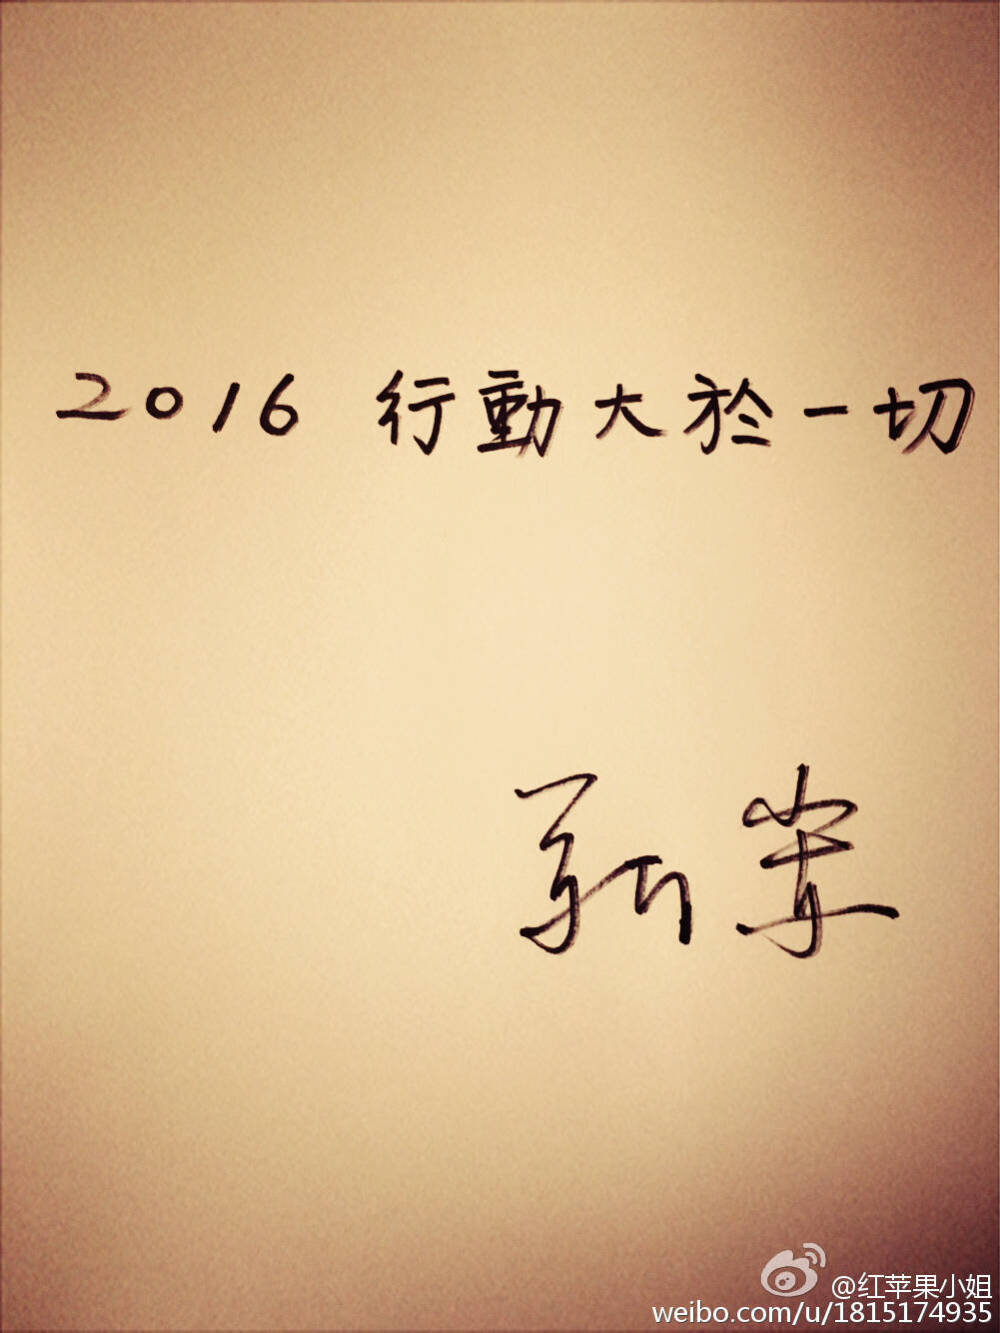 2016 行動大於一切
@红苹果小姐
weibo.com/u/1815174935